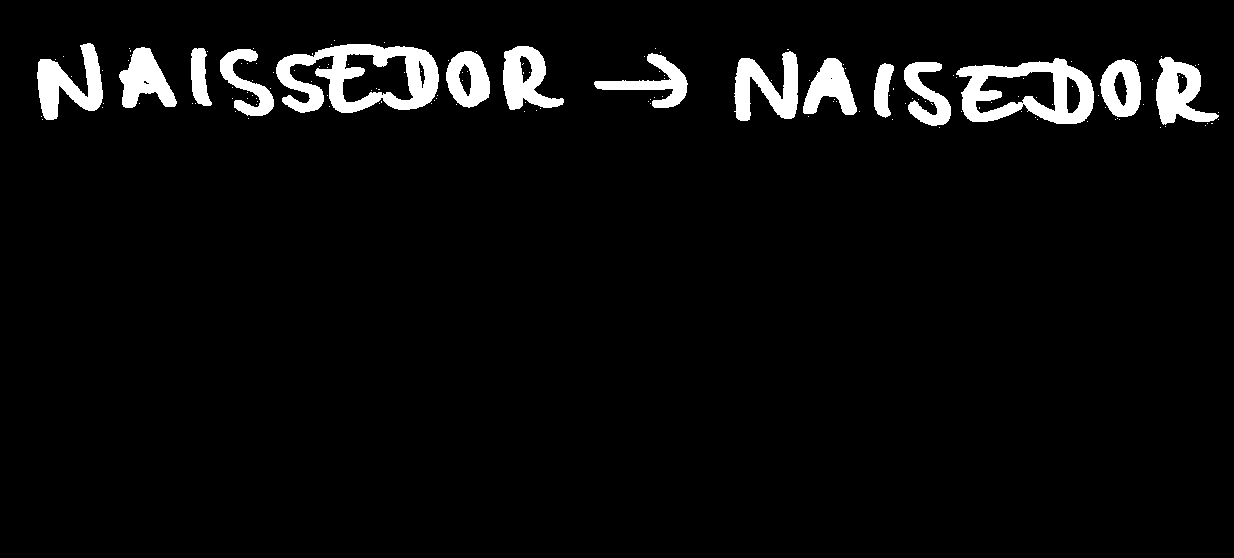 NAISSEDOR → NAISEDOR